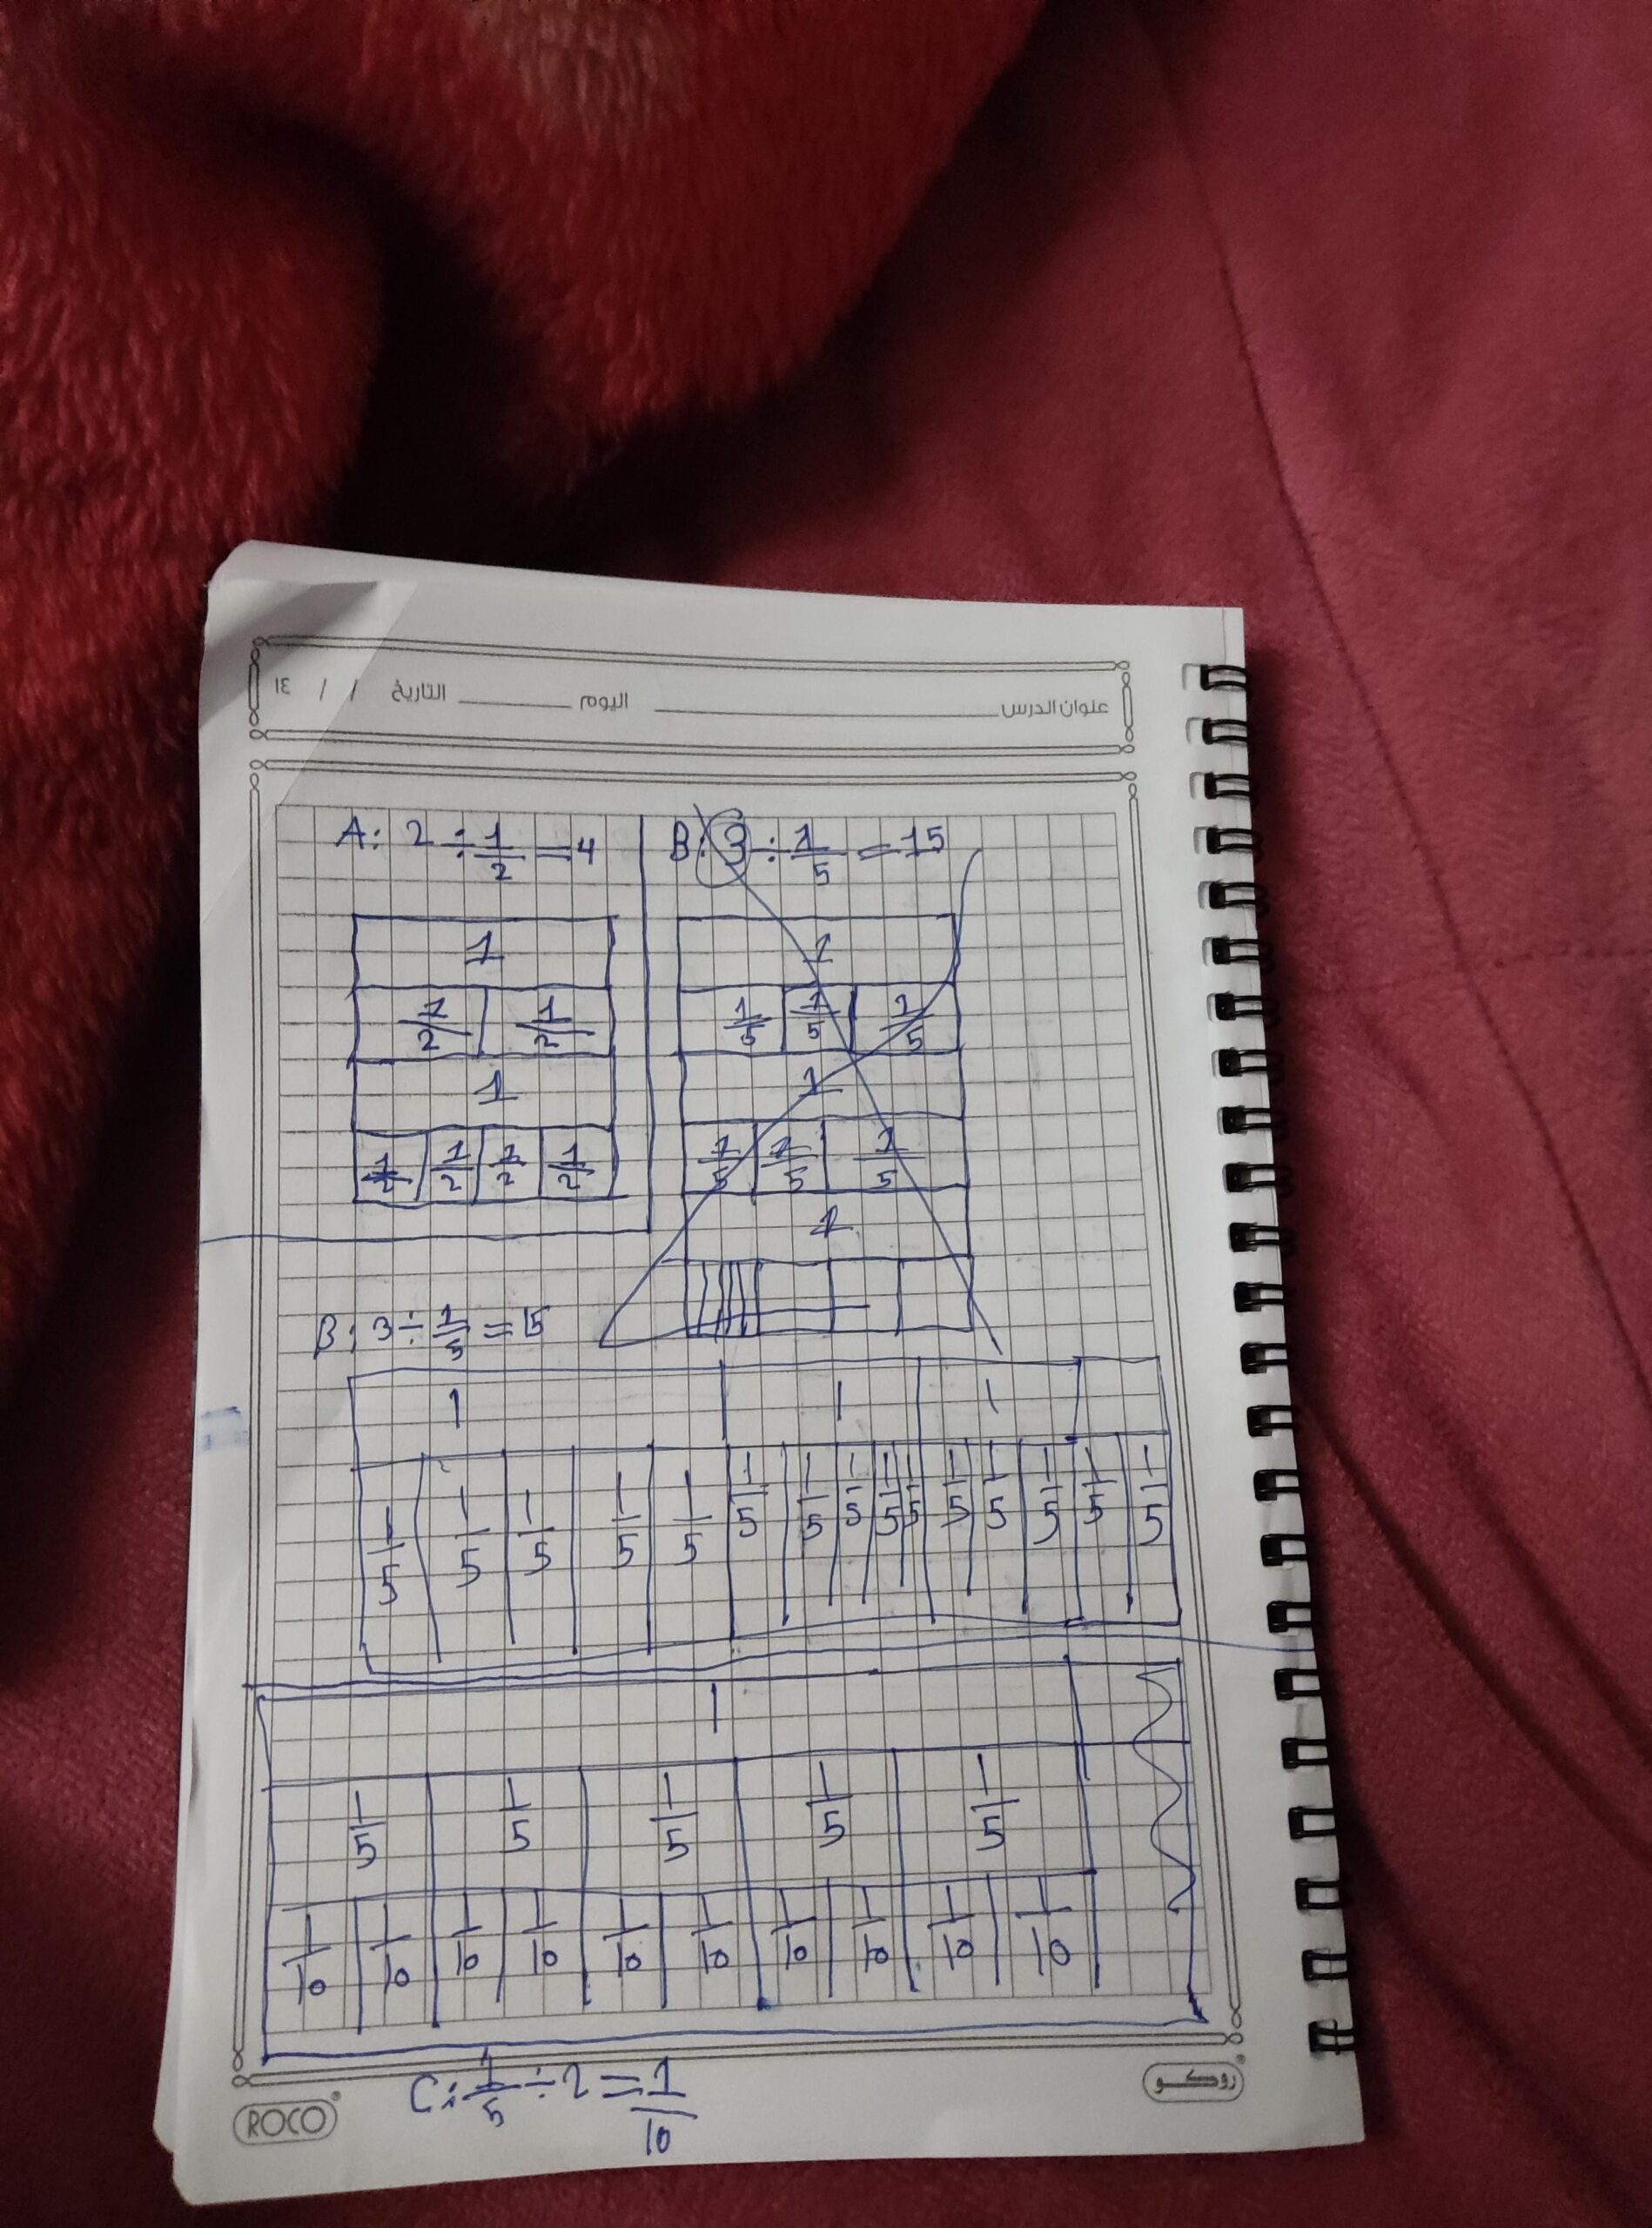 عنوان الدرس اليوم التاريخ / / ١٤
A: 2 ÷ 1/2 = 4
B: 3 ÷ 1/5 = 15
1
1/2 1/2
1
1/2 1/2 1/2 1/2
1
1/5 1/5 1/5
1
1/5 1/5 1/5
1
B: 3 ÷ 1/5 = 15
1 1 1
1/5 1/5 1/5 1/5 1/5 1/5 1/5 1/5 1/5 1/5 1/5 1/5 1/5 1/5 1/5
1
1/5 1/5 1/5 1/5 1/5
1/10 1/10 1/10 1/10 1/10 1/10 1/10 1/10 1/10 1/10
C: 1/5 ÷ 2 = 1/10
ROCO
روكو